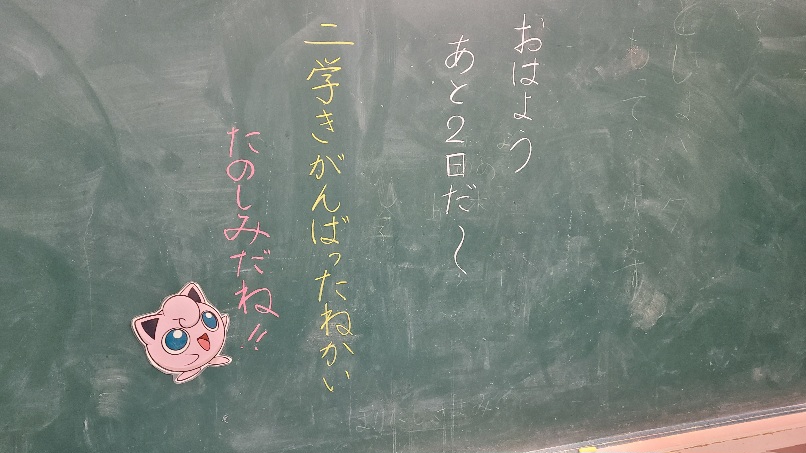 おはよう
あと2日だ～
二学きがんばったねかい
たのしみだね!!